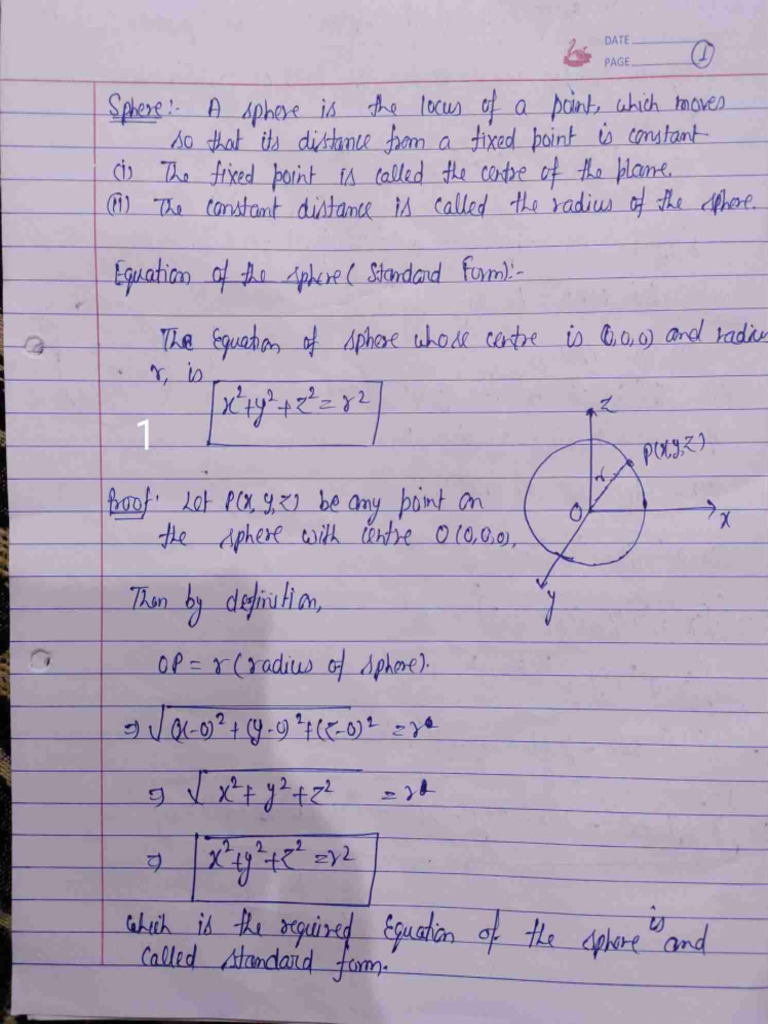 DATE
PAGE 1
Sphere:- A sphere is the locus of a point, which moves
so that its distance from a fixed point is constant
(i) The fixed point is called the centre of the plane.
(ii) The constant distance is called the radius of the sphere.
Equation of the sphere (Standard Form):-
The Equation of sphere whose centre is (0,0,0) and radius
r, is
x²+y²+z²=r²
1
z
P(x,y,z)
r
O
x
y
Proof: Let P(x, y, z) be any point on
the sphere with centre O(0,0,0),
Then by definition,
OP = r (radius of sphere).
⇒ √(x-0)²+(y-0)²+(z-0)² = r
⇒ √x²+y²+z² = r
⇒ x²+y²+z²=r²
which is the required Equation of the sphere is and
called standard form.